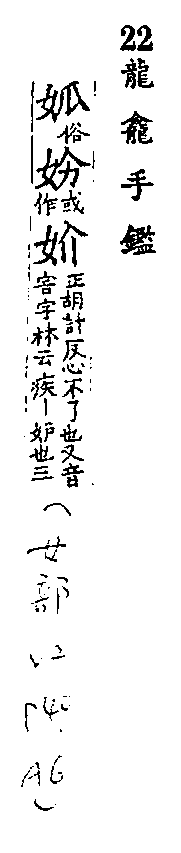 22 龍龕手鑑
俗妢或作妎正胡計反心不了也又音害字林云疾丨妒也三
(女部
A6)